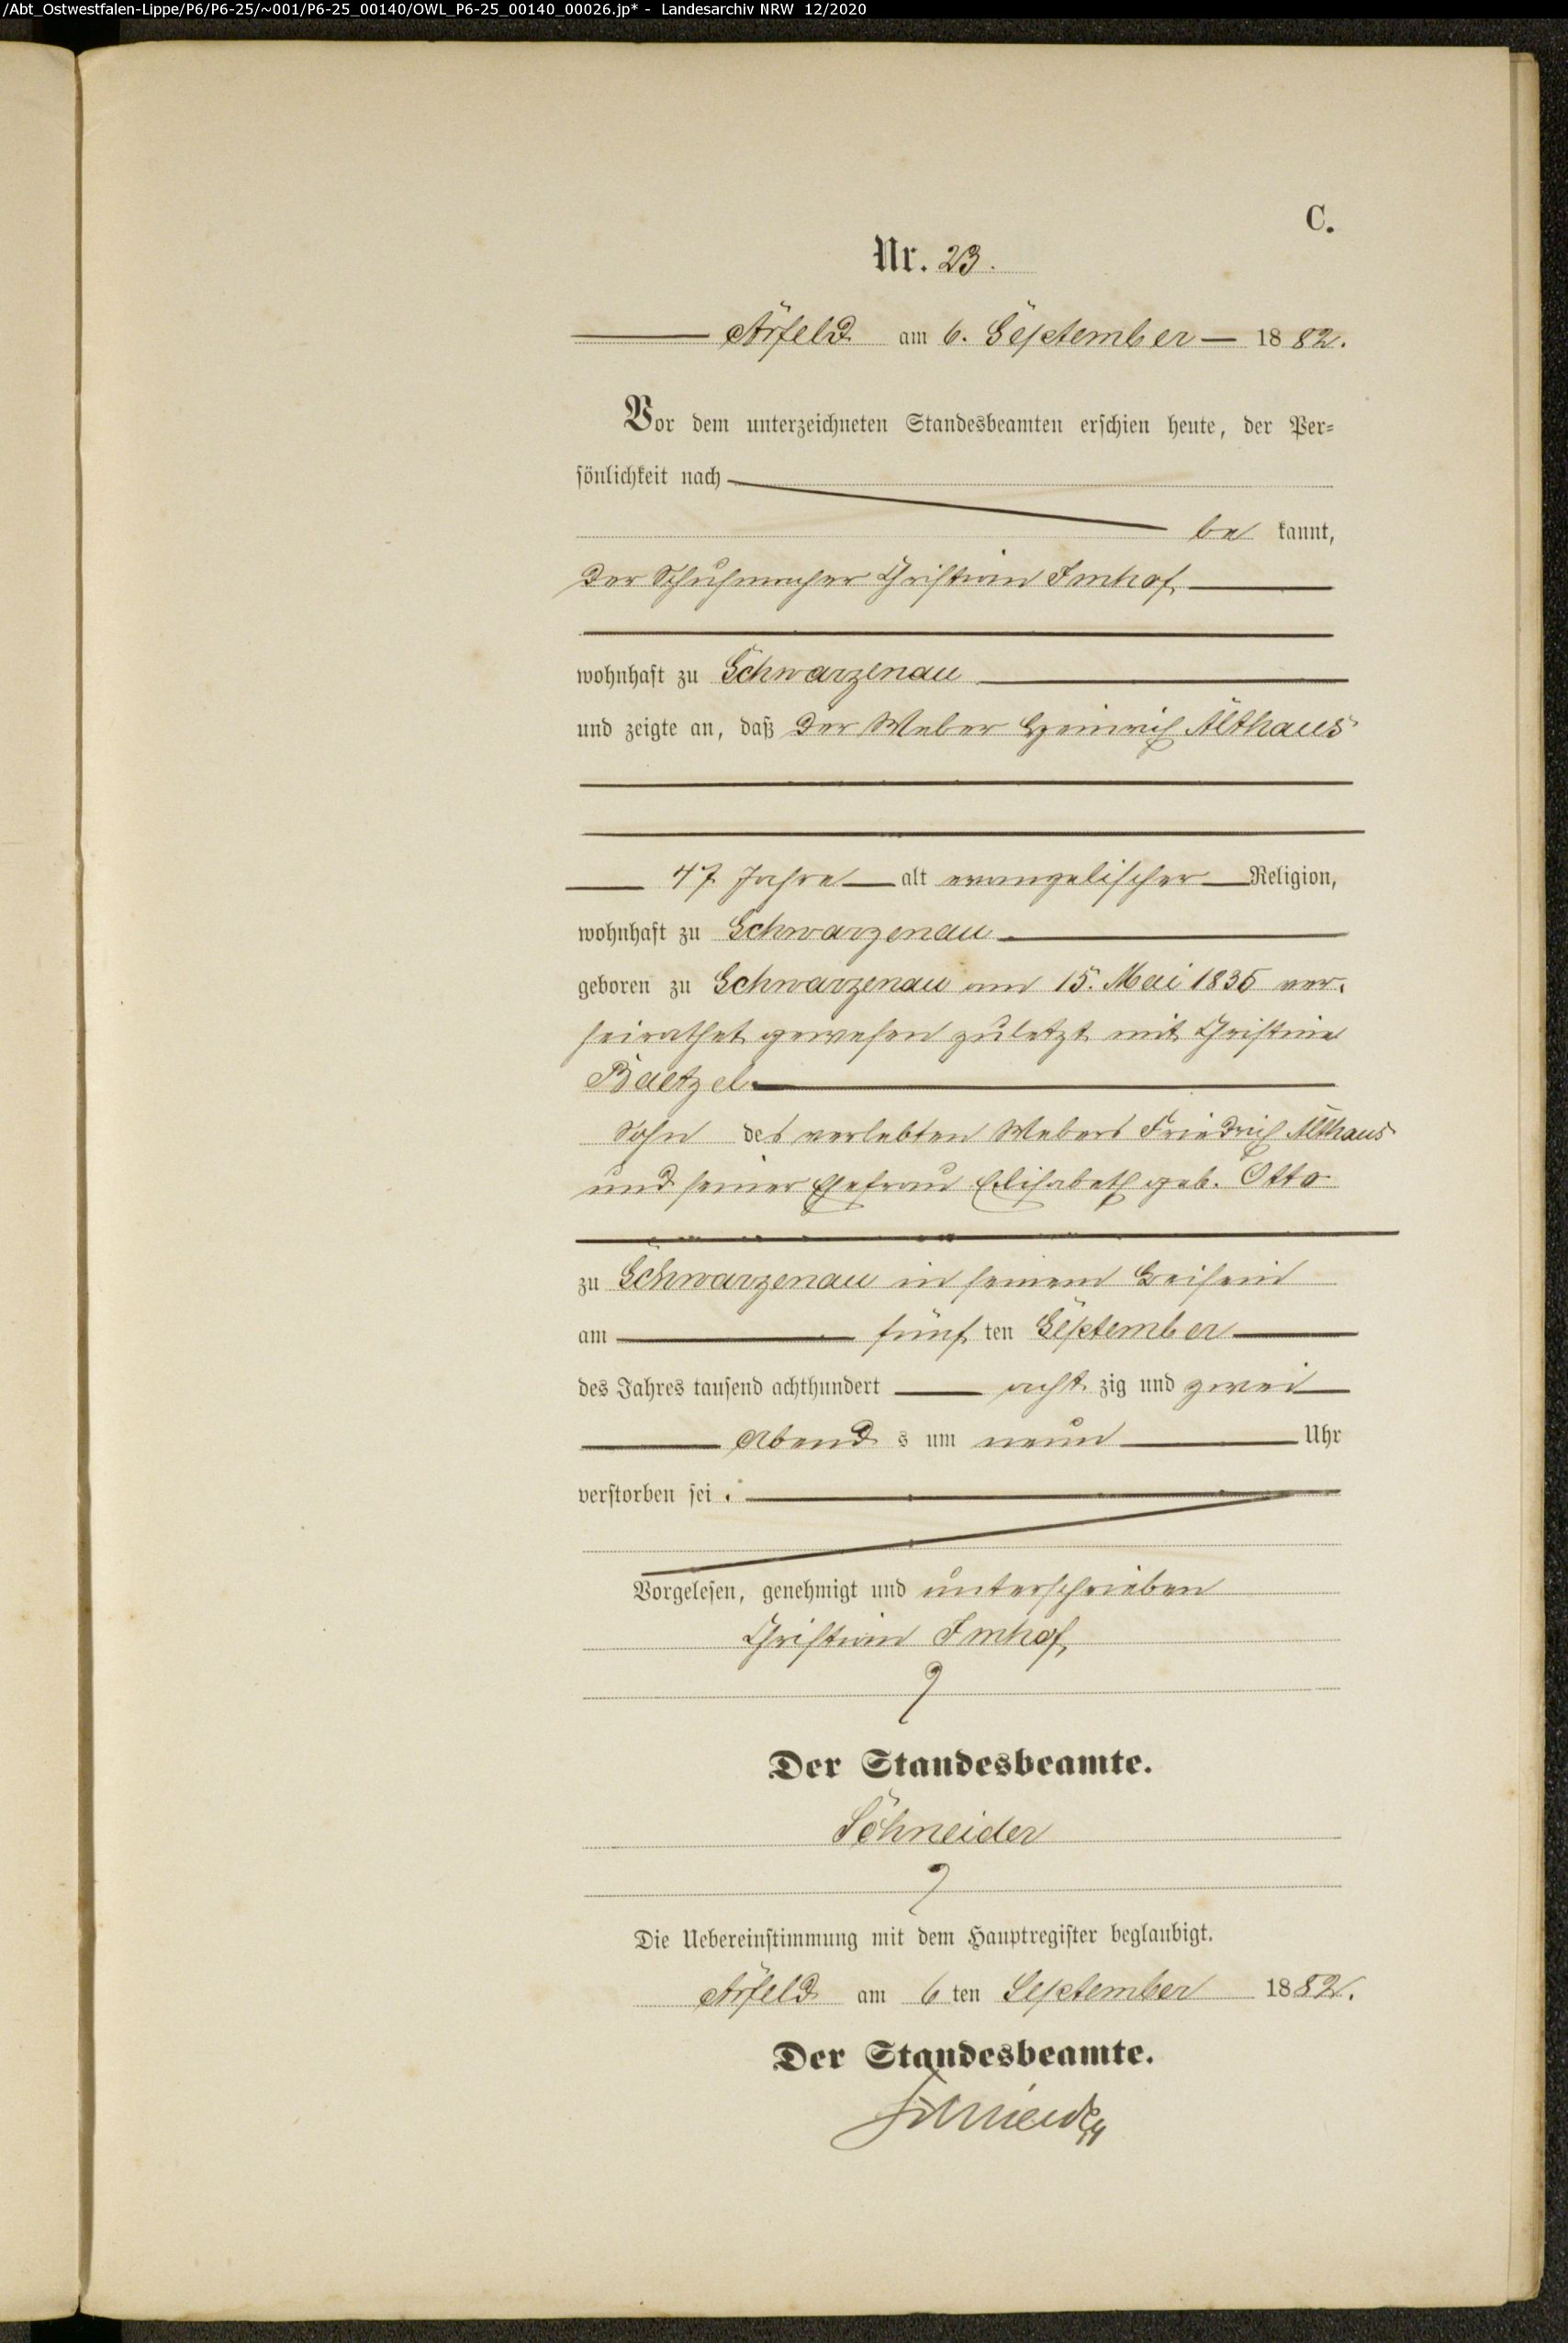 /Abt_Ostwestfalen-Lippe/P6/P6-25/~001/P6-25_00140/OWL_P6-25_00140_00026.jp* - Landesarchiv NRW 12/2020
C.
Nr. 23.
Arfeld am 6. September 1882.
Vor dem unterzeichneten Standesbeamten erschien heute, der Per-
sönlichkeit nach
be kannt,
der Schuhmacher Christian Imhof
wohnhaft zu Schwarzenau
und zeigte an, daß der Weber Heinrich Althaus
47 Jahre alt evangelischer Religion,
wohnhaft zu Schwarzenau
geboren zu Schwarzenau am 15. Mai 1835 ver-
heirathet gewesen zuletzt mit Christine
Baetzel
Sohn des verlebten Webers Friedrich Althaus
und seiner Ehefrau Elisabeth geb. Otto
zu Schwarzenau in seinem Beisein
am fünf ten September
des Jahres tausend achthundert acht zig und zwei
Abend s um neun Uhr
verstorben sei.
Vorgelesen, genehmigt und unterschrieben
Christian Imhof
Der Standesbeamte.
Schneider
Die Uebereinstimmung mit dem Hauptregister beglaubigt.
Arfeld am 6 ten September 1882.
Der Standesbeamte.
Schneider